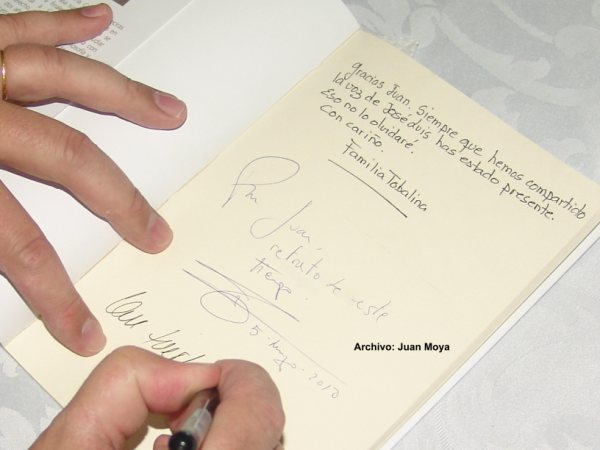 Gracias Juan. Siempre que hemos compartido
la voz de José Luis has estado presente.
Eso no lo olvidaré.
Con cariño.
Familia Tobalina
Juan,
retrato de este
tiempo.
5 mayo 2010
Con
Archivo: Juan Moya